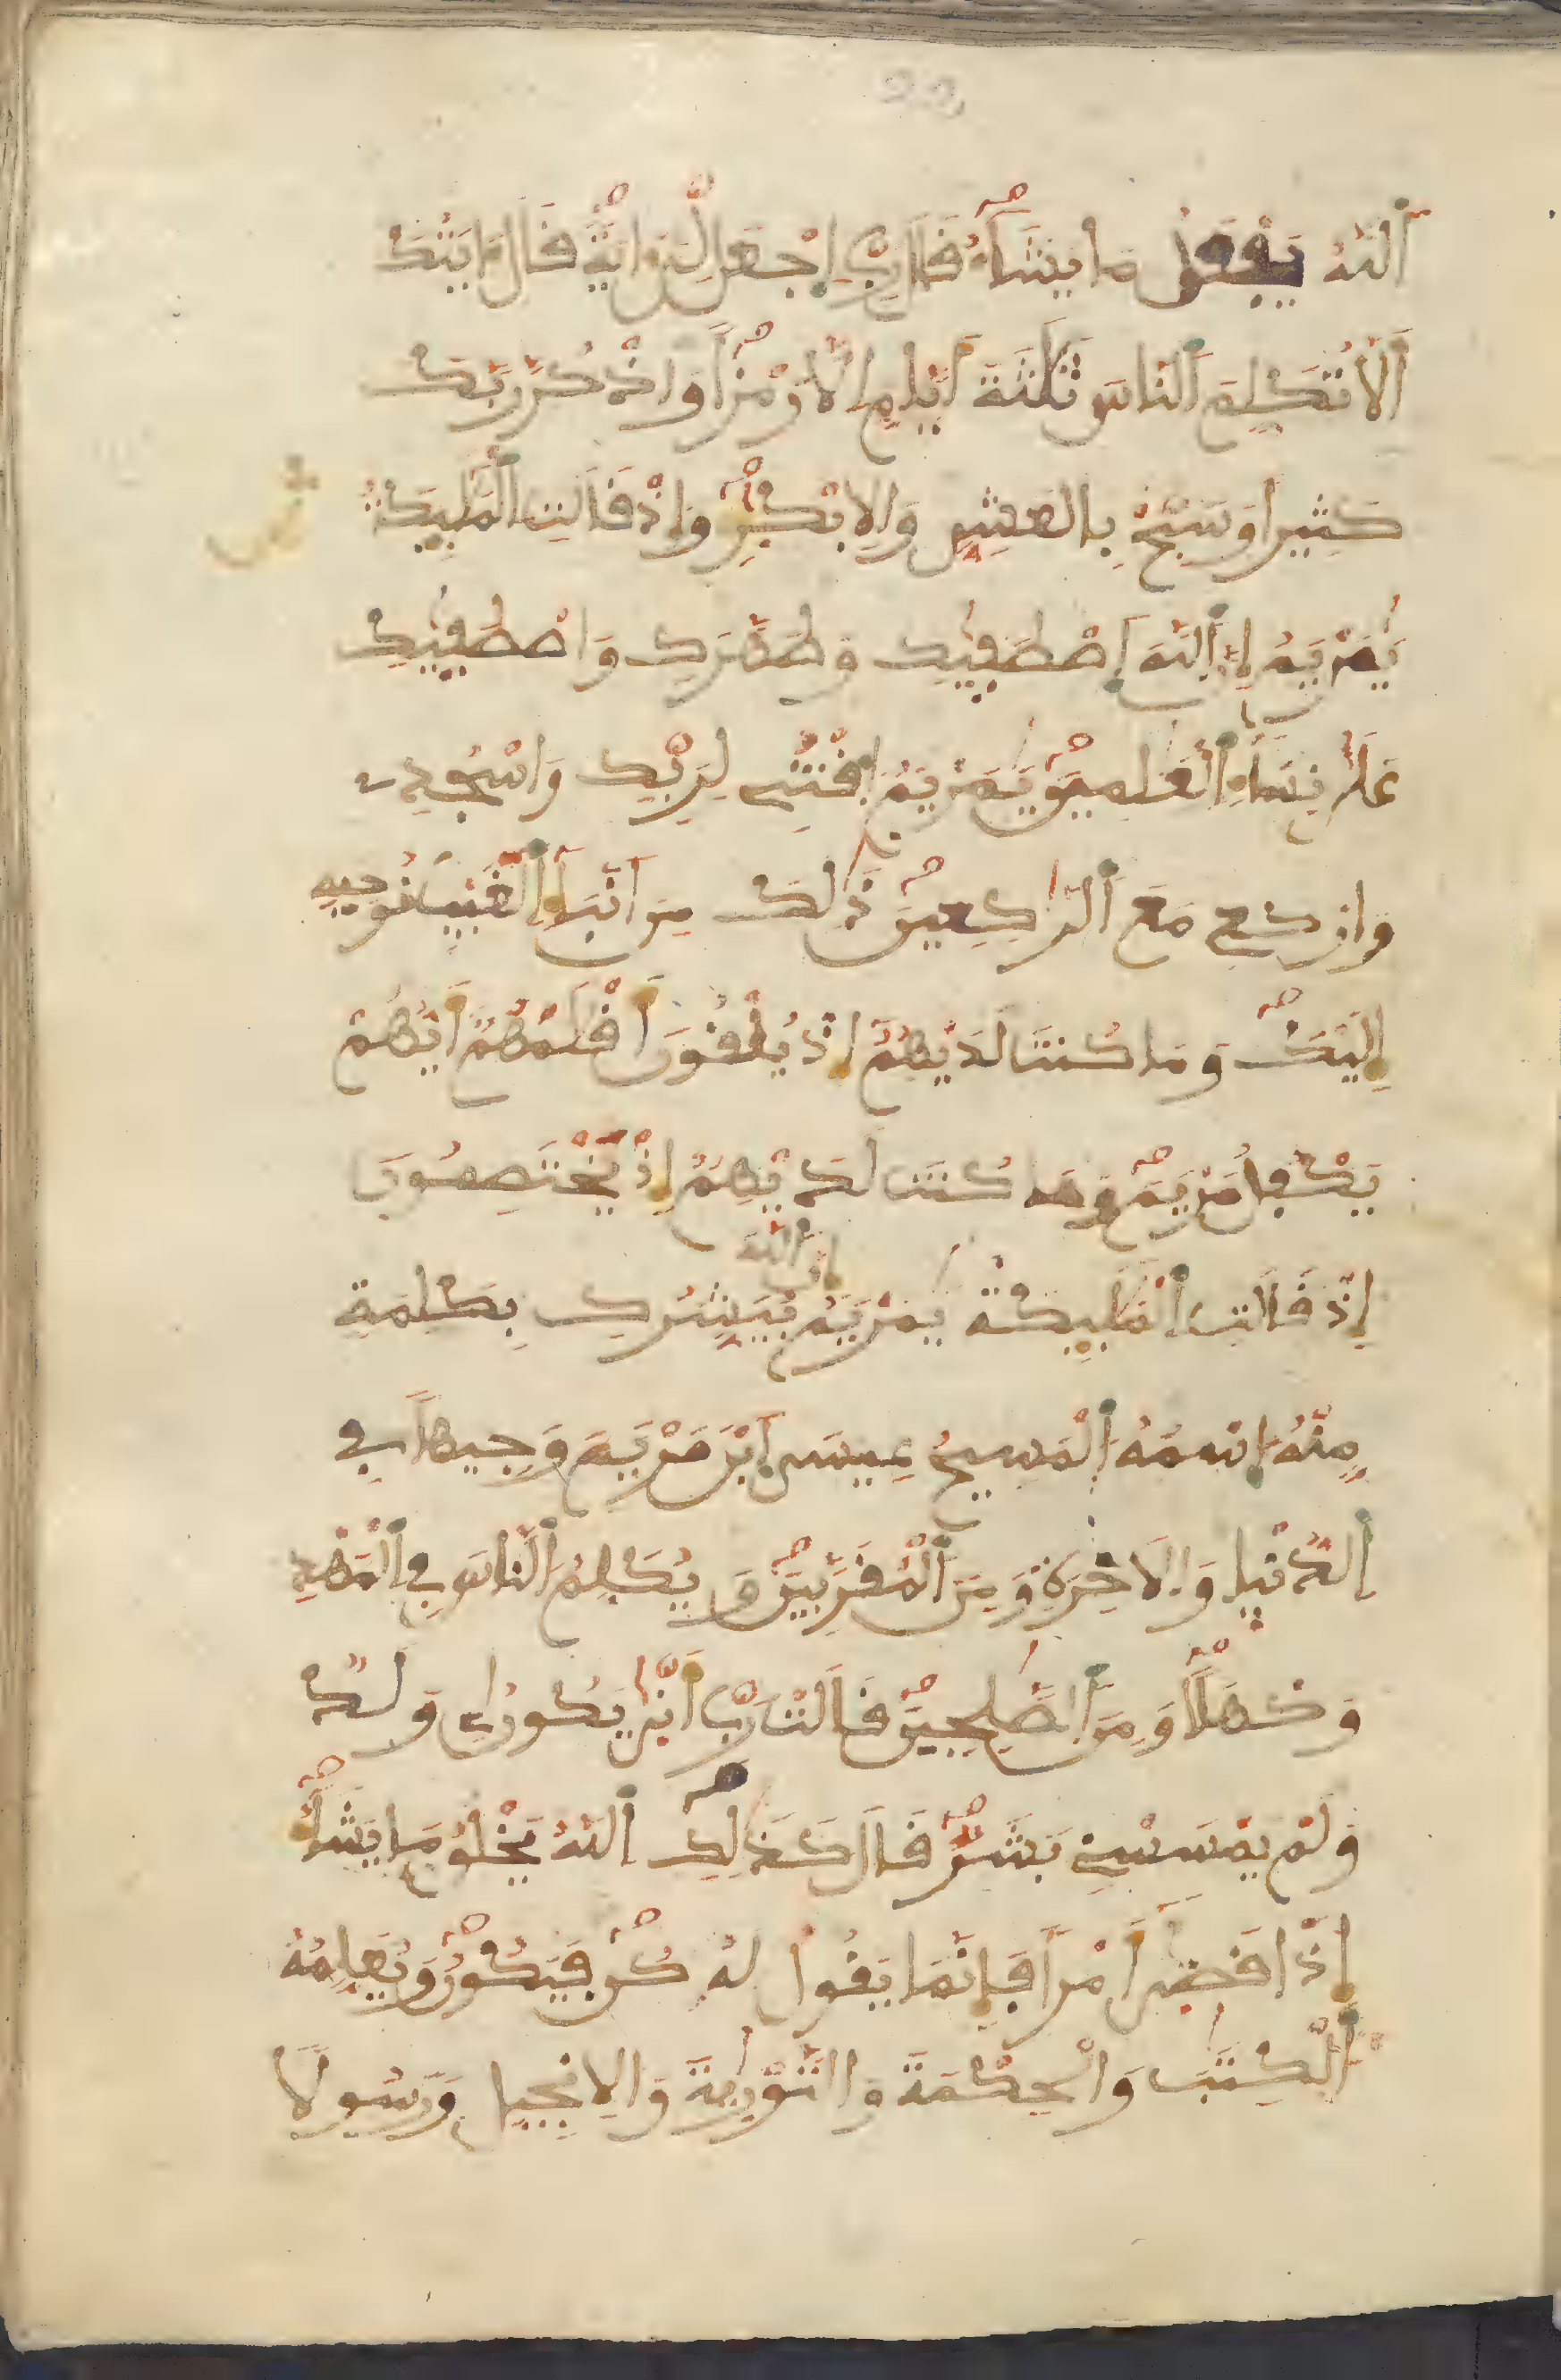 اَللَّهُ يَفْعَلُ مَا يَشَآءُ قَالَ رَبِّ اِجْعَل لِّيَ ءَايَةً قَالَ ءَايَتُكَ
أَلَّا تُكَلِّمَ اَلنَّاسَ ثَلَٰثَةَ أَيَّامٍ اِلَّا رَمْزاً وَاذْكُر رَّبَّكَ
كَثِيراً وَسَبِّحْ بِالْعَشِيِّ وَالِابْكٰرِ وَإِذْ قَالَتِ اِلْمَلَٰٓئِكَةُ
يَٰمَرْيَمُ إِنَّ اَللَّهَ اَصْطَفَيٰكِ وَطَهَّرَكِ وَاصْطَفَيٰكِ
عَلَىٰ نِسَآءِ اِلْعَٰلَمِينَ يَٰمَرْيَمُ اُقْنُتِے لِرَبِّكِ وَاسْجُدِے
وَارْكَعِے مَعَ اَلرَّٰكِعِينَ ذَٰلِكَ مِنَ اَنۢبَآءِ اِلْغَيْبِ نُوحِيهِ
إِلَيْكَ وَمَا كُنتَ لَدَيْهِمُۥٓ إِذْ يُلْقُونَ أَقْلَٰمَهُمُۥٓ أَيُّهُمْ
يَكْفُلُ مَرْيَمَ وَمَا كُنتَ لَدَيْهِمُۥٓ إِذْ يَخْتَصِمُونَ
إِذْ قَالَتِ اِلْمَلَٰٓئِكَةُ يَٰمَرْيَمُ إِنَّ اَللَّهَ يُبَشِّرُكِ بِكَلِمَةٍ
مِّنْهُ اُسْمُهُ اُلْمَسِيحُ عِيسَى اَبْنُ مَرْيَمَ وَجِيهاً فِے
اِلدُّنْيٰا وَالَاخِرَةِ وَمِنَ اَلْمُقَرَّبِينَ وَيُكَلِّمُ اُلنَّاسَ فِے اِلْمَهْدِ
وَكَهْلًا وَمِنَ اَلصَّٰلِحِينَ قَالَتْ رَبِّ أَنّٰى يَكُونُ لِے وَلَدٌ
وَلَمْ يَمْسَسْنِے بَشَرٌ قَالَ كَذَٰلِكِ اِللَّهُ يَخْلُقُ مَا يَشَآءُ
إِذَا قَضَىٰٓ أَمْراً فَإِنَّمَا يَقُولُ لَهُۥ كُن فَيَكُونُ وَيُعَلِّمُهُ
اُلْكِتَٰبَ وَالْحِكْمَةَ وَالتَّوْرَىٰةَ وَالِانجِيلَ وَرَسُولًا